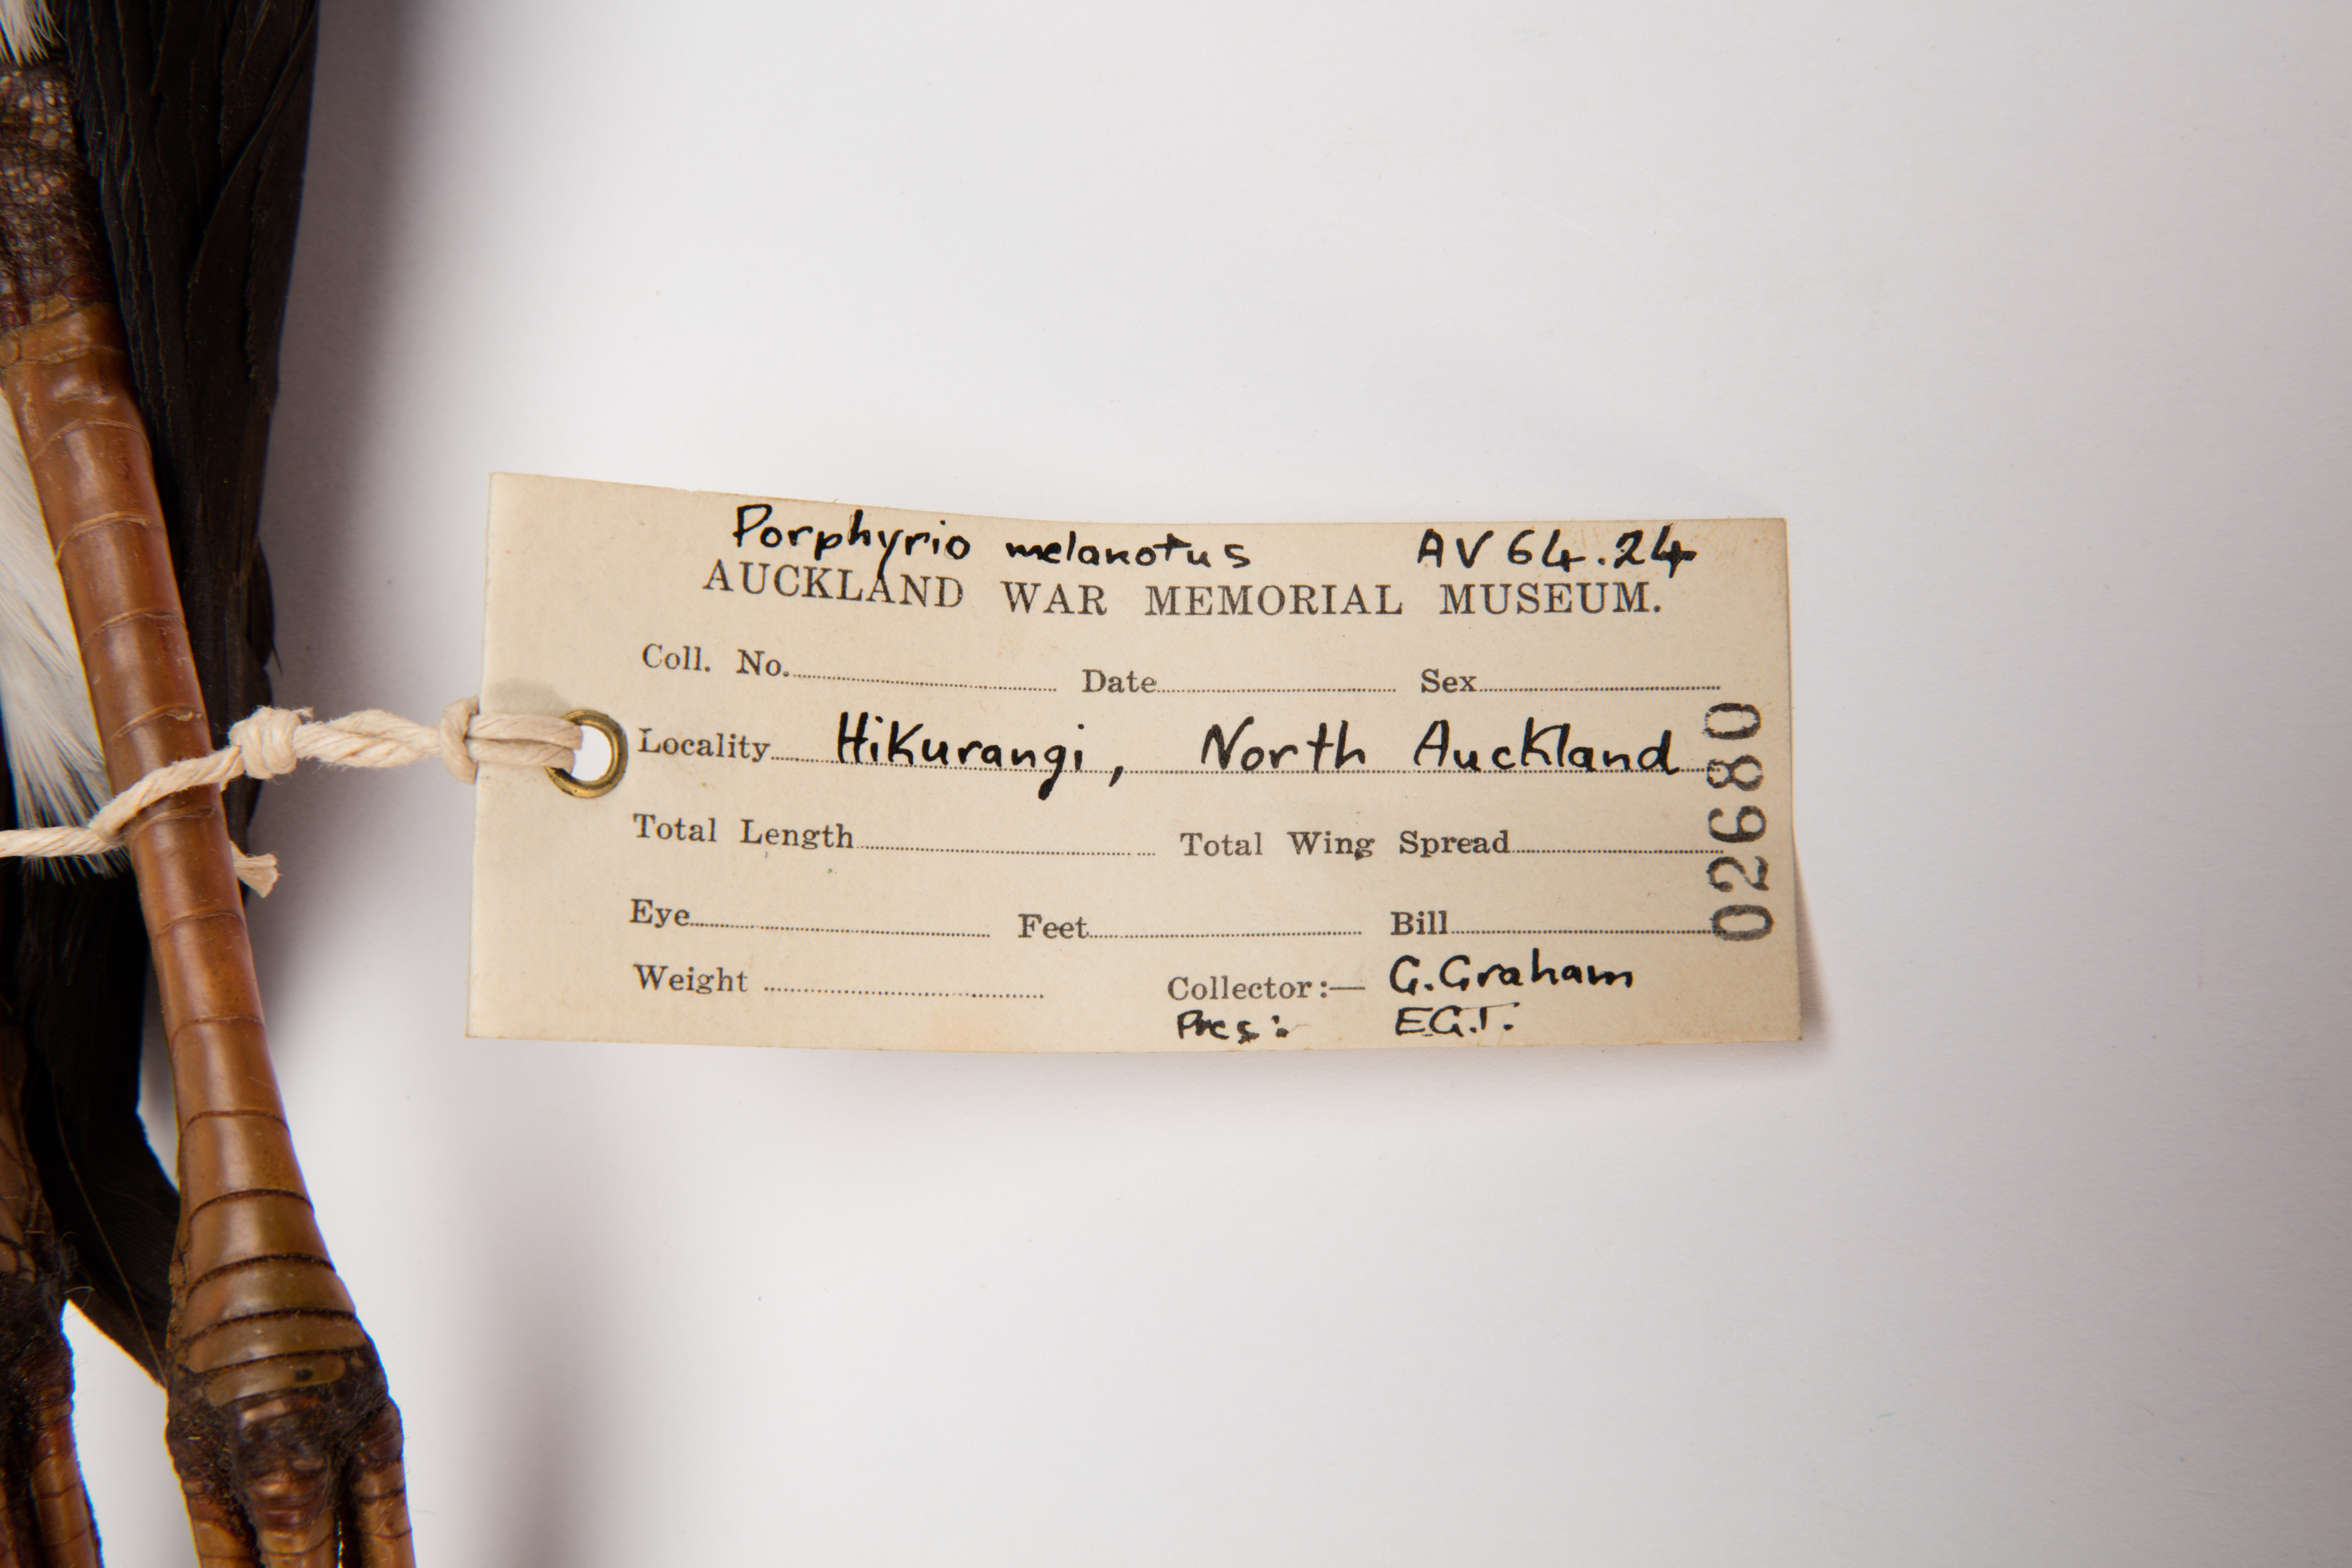 Porphyrio melanotus AV 64.24
AUCKLAND WAR MEMORIAL MUSEUM.
Coll. No. Date Sex
Locality Hikurangi, North Auckland
Total Length Total Wing Spread
Eye Feet Bill
Weight Collector:— G. Graham
Pres: E.G.T.
02680